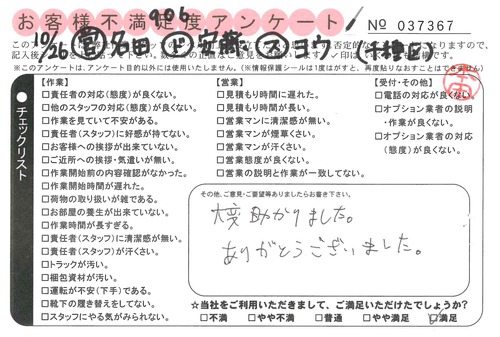 お客様不満足度アンケート
No 037367
906
10/26 営 名田 ド 安齋 ス ヨウ (千種区)
※このアンケートは、アンケート目的以外には使用いたしません。(※情報保護シールは1度はがすと、再度貼りなおすことはできません)
チェックリスト
【作業】
□責任者の対応(態度)が良くない。
□他のスタッフの対応(態度)が良くない。
□作業を見ていて不安がある。
□責任者(スタッフ)に好感が持てない。
□お客様への挨拶が出来ていない。
□ご近所への挨拶・気遣いが無い。
□作業開始前の内容確認がなかった。
□作業開始時間が遅れた。
□荷物の取り扱いが雑である。
□お部屋の養生が出来ていない。
□作業時間が長すぎる。
□責任者(スタッフ)に清潔感が無い。
□責任者(スタッフ)が汗くさい。
□トラックが汚い。
□梱包資材が汚い。
□運転が不安(下手)である。
□靴下の履き替えをしてない。
□スタッフにやる気がみられない。
【営業】
□見積もり時間に遅れた。
□見積もり時間が長い。
□営業マンに清潔感が無い。
□営業マンが煙草くさい。
□営業マンが汗くさい。
□営業態度が良くない。
□営業の説明と作業が一致してない。
【受付・その他】
□電話の対応が良くない。
□オプション業者の説明
・作業が良くない。
□オプション業者の対応
(態度)が良くない。
その他、ご意見・ご要望等ありましたらお書き下さい。
大変助かりました。
ありがとうございました。
☆当社をご利用いただきまして、ご満足いただけたでしょうか?
□不満 □やや不満 □普通 □やや満足 □満足